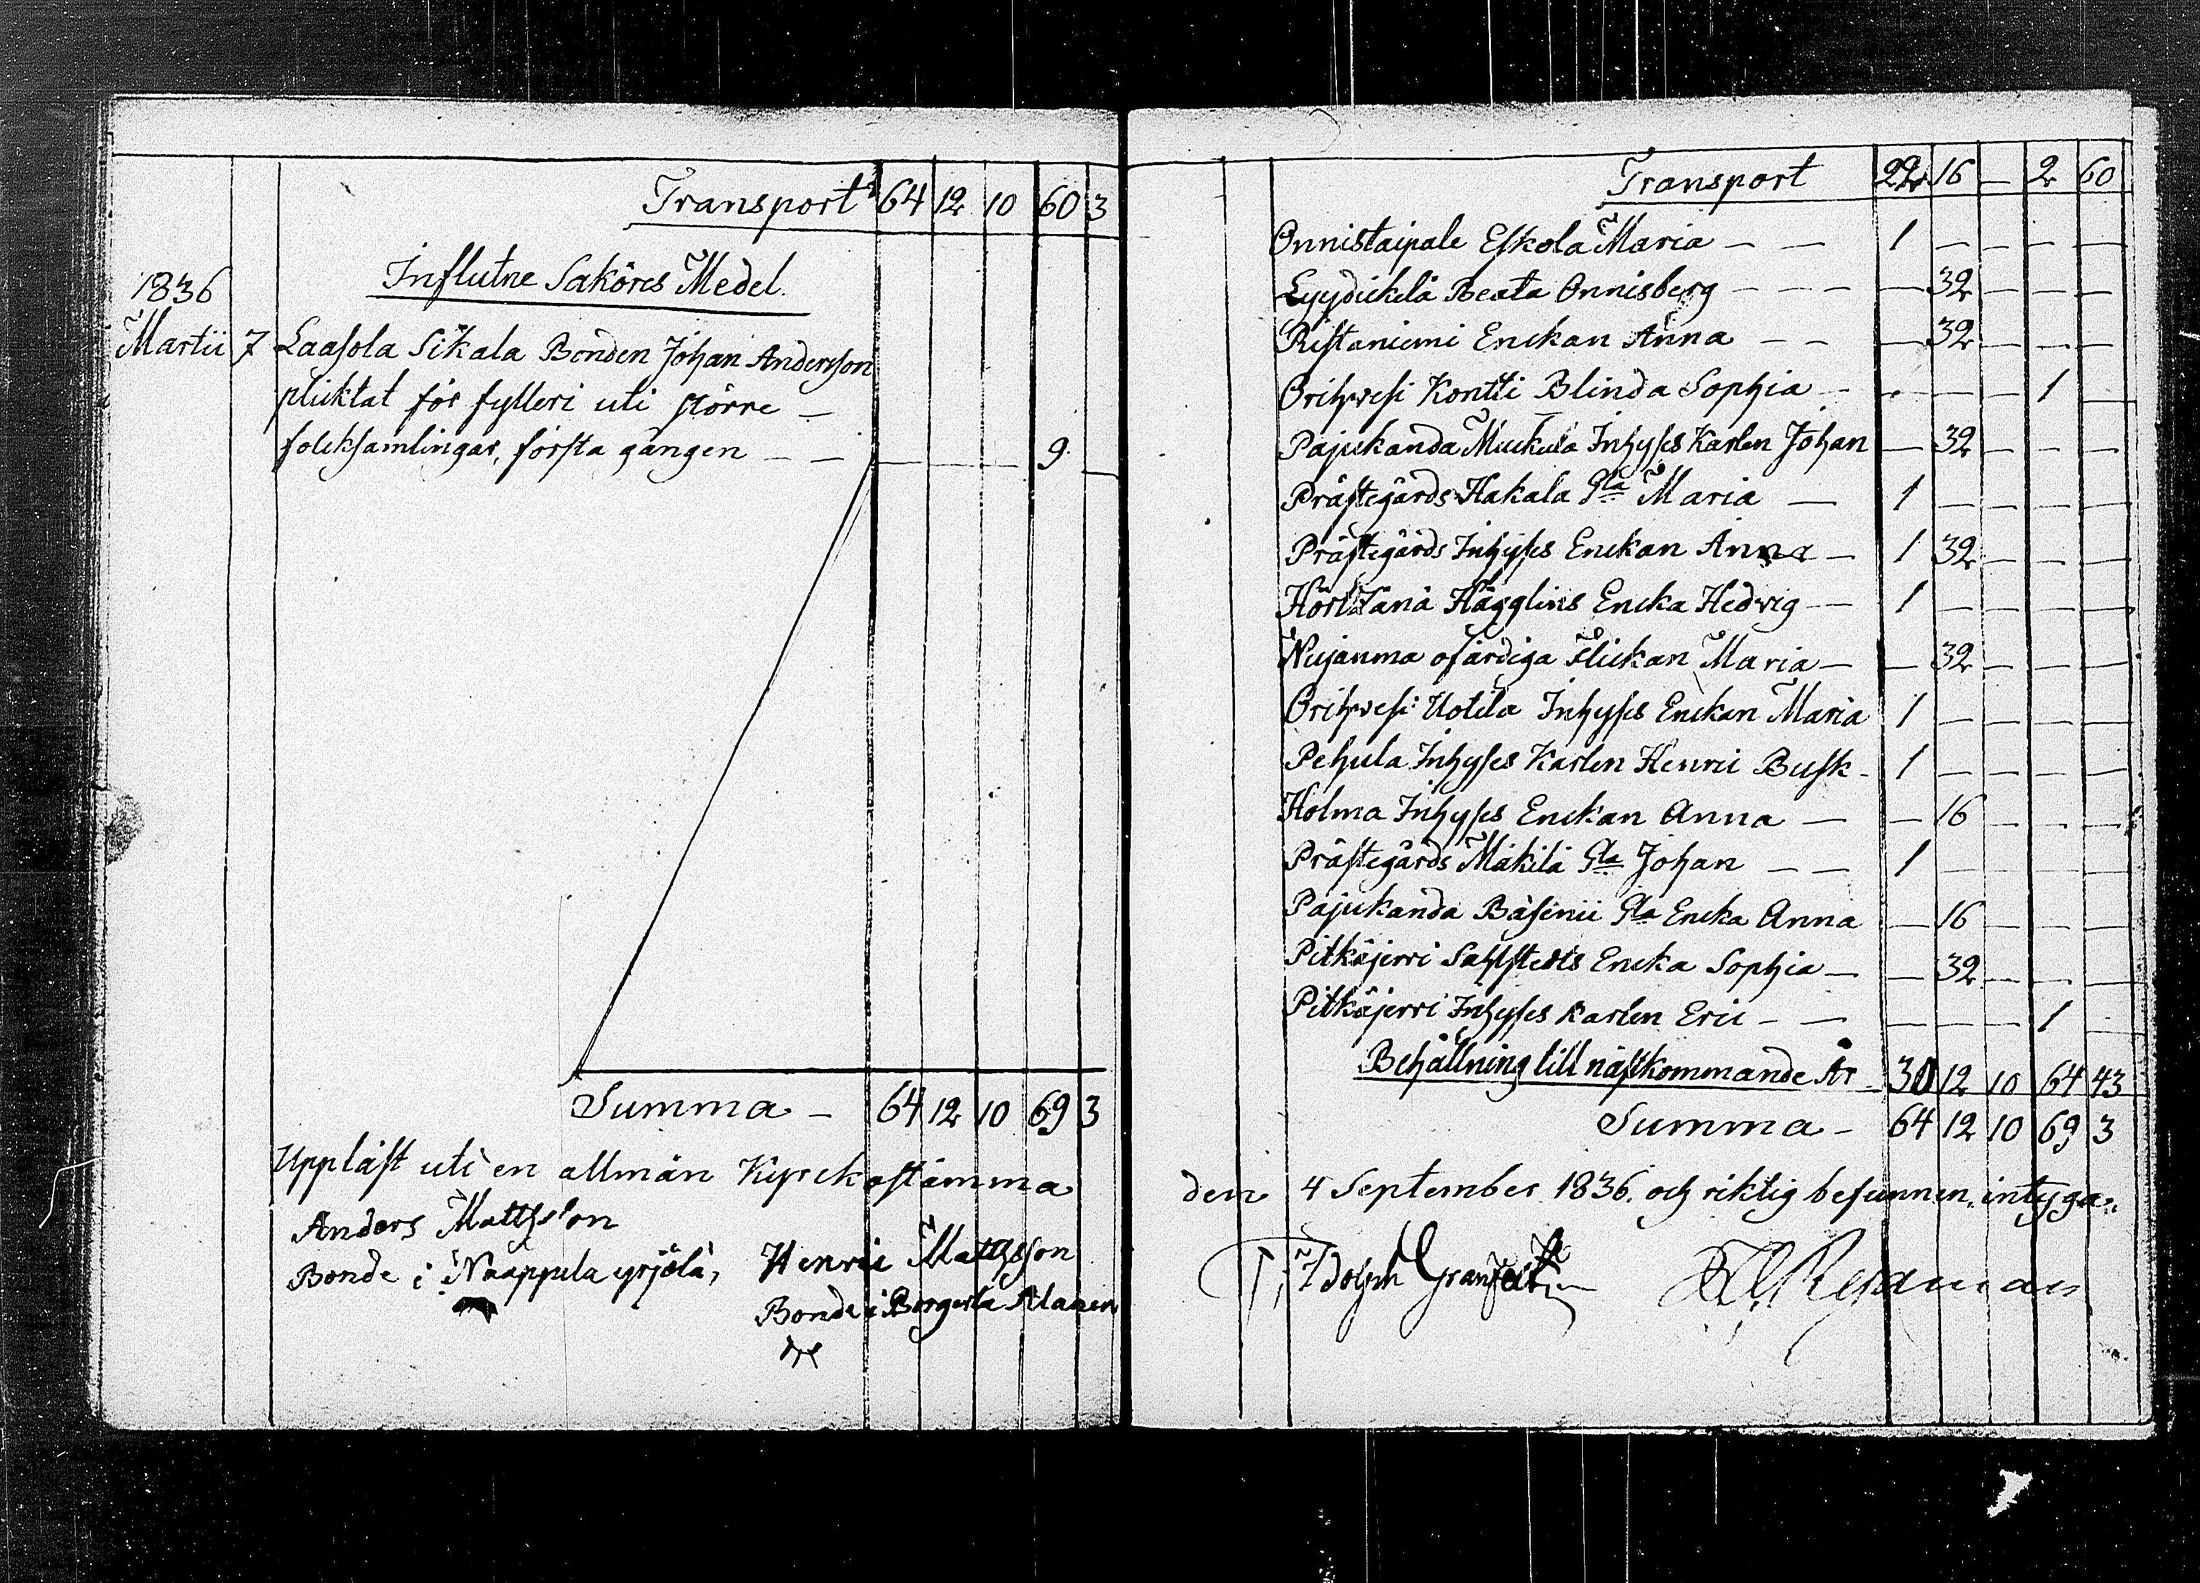 Transport 64 12 10 60 3
Influtne Saköres Medel.
1836
Martii 7 Laasola Sikala Bonden Johan Andersson
pliktat för fylleri uti större —
folcksamlingar, första gången — — — — — 9. —
Summa — 64 12 10 69 3
Uppläst uti en allmän Kyrckostämma
Anders Mattsson
Bonde i Naappula yrjölä,
Henric Mattsson
Bonde i Borgerla Alanen
Transport 22 16 — 2 60
Onnistaipale Eskola Maria — — 1 — — — —
Lyydickilä Beata Onnisberg — — — — 32 — — —
Ristaniemi Enckan Anna — — — 32 — — —
Orihvesi Kontti Blinda Sophia — — — — 1 —
Pajukanda Muckula Inhyses Karlen Johan — 32 — — —
Prästegårds Hakala Gla Maria — 1 — — — —
Prästegårds Inhyses Enckan Anna — 1 32 — — —
Hörtänä Hägglins Encka Hedvig — — 1 — — — —
Nujanma ofärdiga Flickan Maria — — 32 — — —
Orihvesi Uotila Inhyses Enckan Maria 1 — — — —
Pehula Inhyses Karlen Henric Busk — 1 — — — —
Holma Inhyses Enckan Anna — — 16 — — —
Prästegårds Mäkilä Gla Johan — — 1 — — — —
Pajukanda Båsenii Gla Encka Anna — 16 — — —
Pitkäjervi Sahlstedts Encka Sophia — — 32 — — —
Pitkäjervi Inhyses Karlen Eric — — — — — 1 —
Behållning till nästkommande År — 30 12 10 64 43
Summa — 64 12 10 69 3
den 4 September 1836. och riktig befunnen. intyga:
Adolph Granfelt